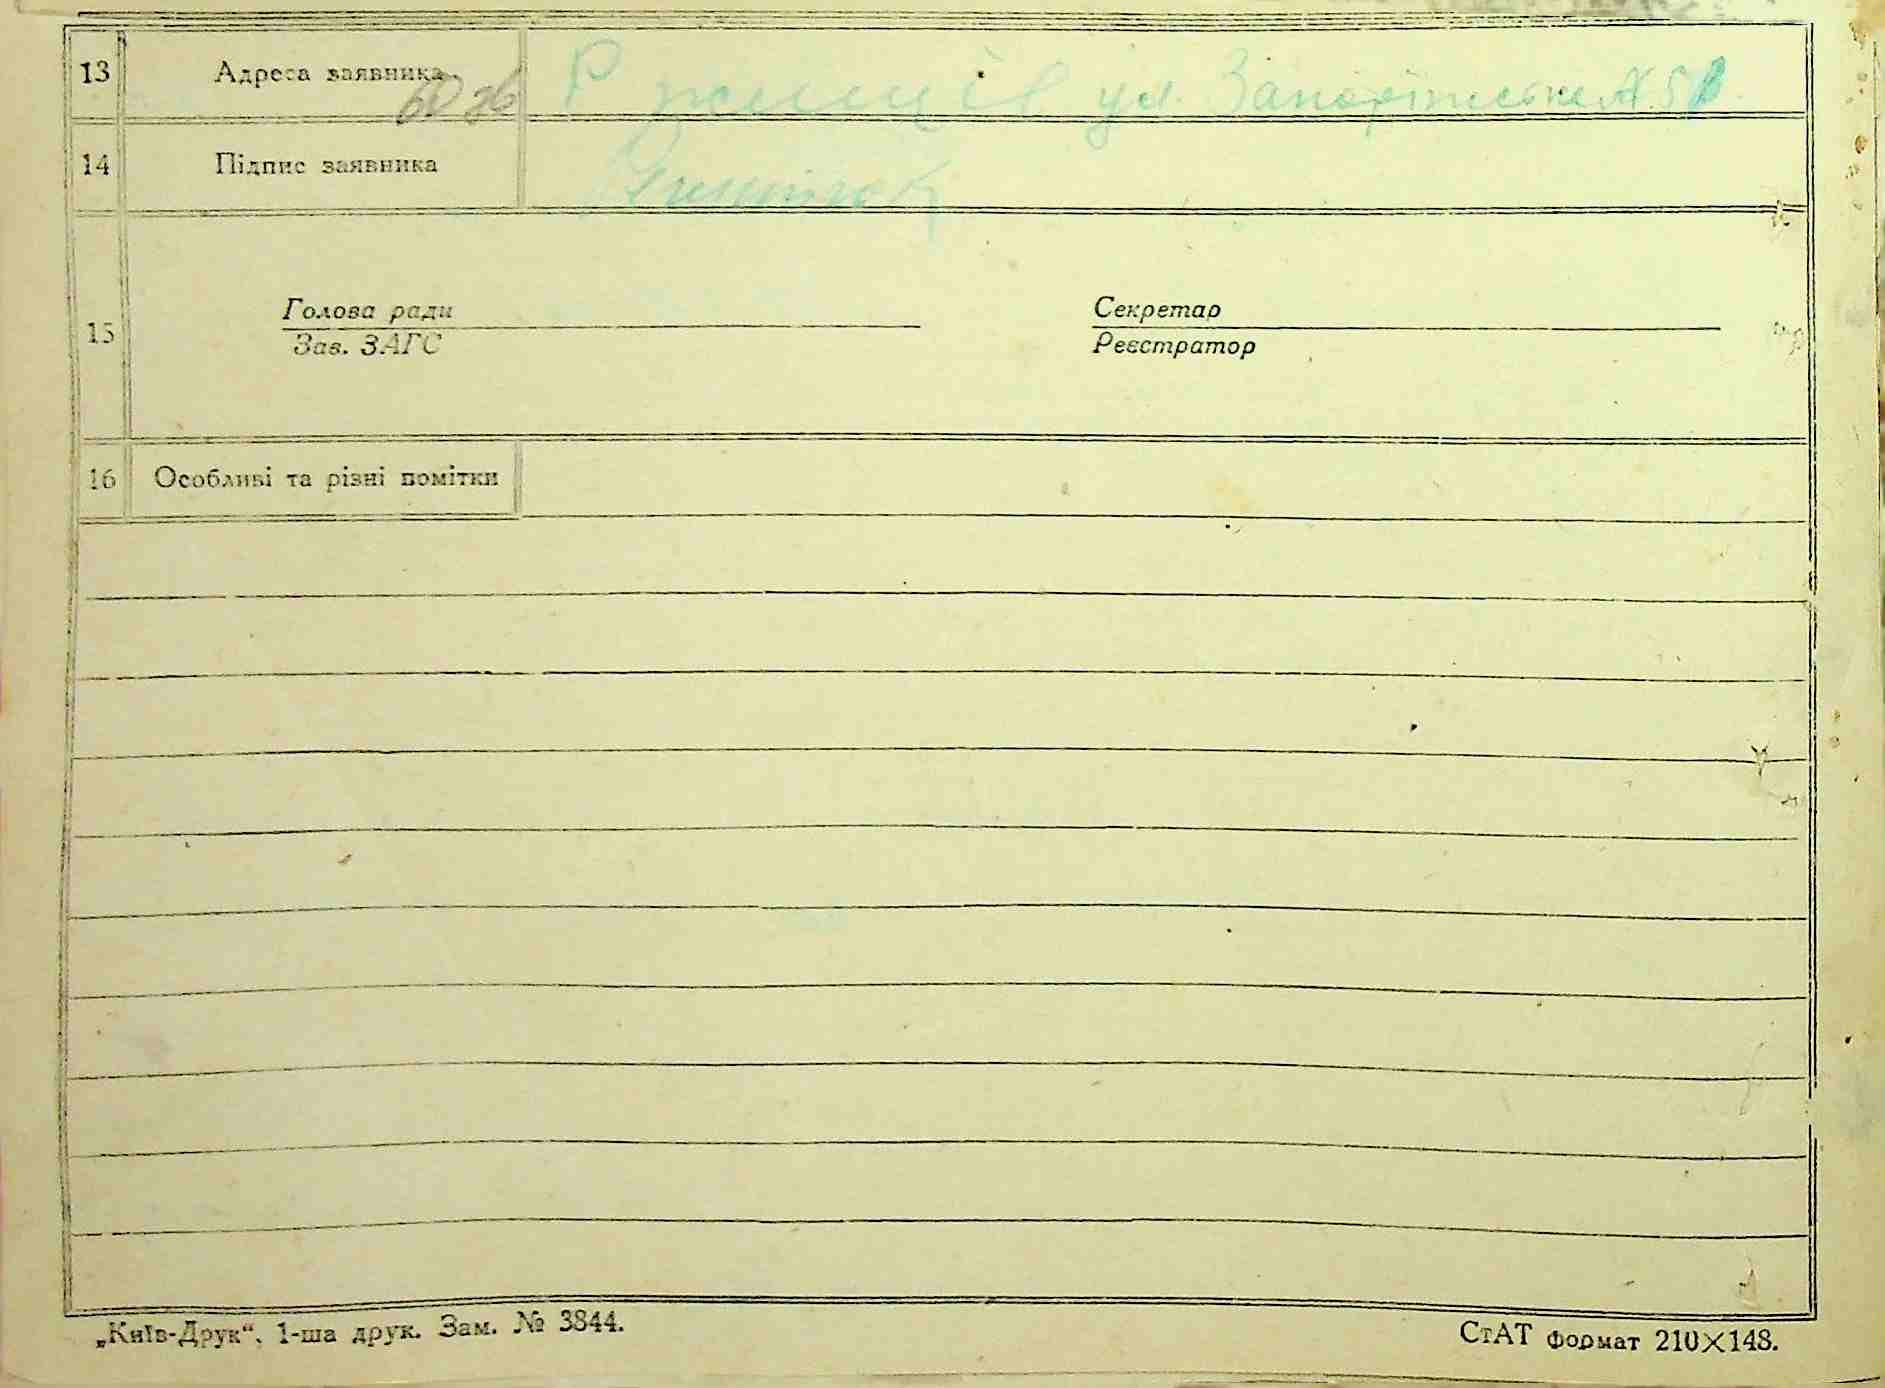 13 Адреса заявника Ржищів ул. Запорізьське № 5
14 Підпис заявника
15 Голова ради Секретар
Зав. ЗАГС Реєстратор
16 Особливі та різні помітки
„Київ-Друк“, 1-ша друк. Зам. № 3844. СтАТ формат 210×148.